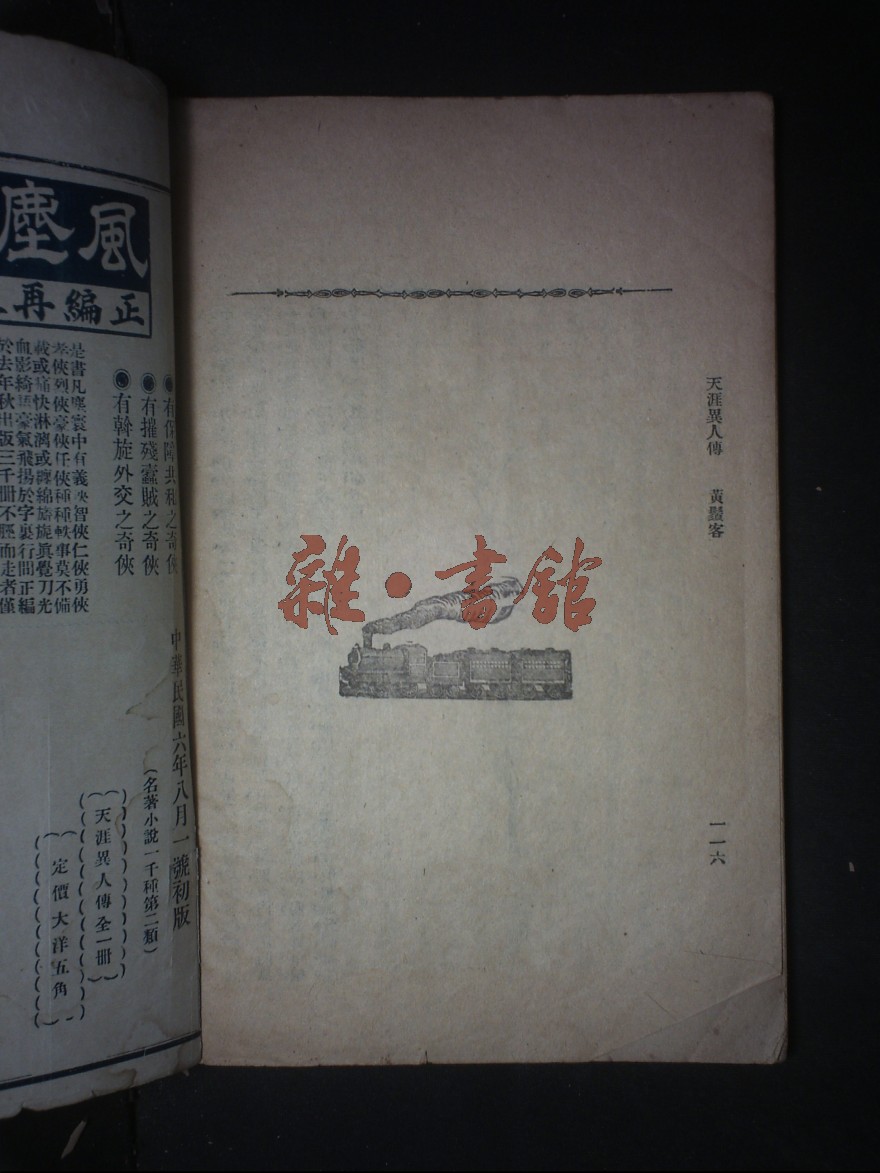 天涯異人傳 黃鬚客
一一六
雜·書舘
風塵
正編再
有保障共和之奇俠
◉有摧殘蠹賊之奇俠
◉有斡旋外交之奇俠
是書凡寰中有義俠智俠仁俠勇俠
孝俠烈俠豪俠任俠種種軼事莫不備
載或痛快淋漓或纏綿旖旎眞覺刀光
血影綺語豪氣飛揚於字裏行間正編
於去年秋出版三千册不脛而走者僅
中華民國六年八月一號初版
(名著小說一千種第二類)
天涯異人傳全一冊
定價大洋五角